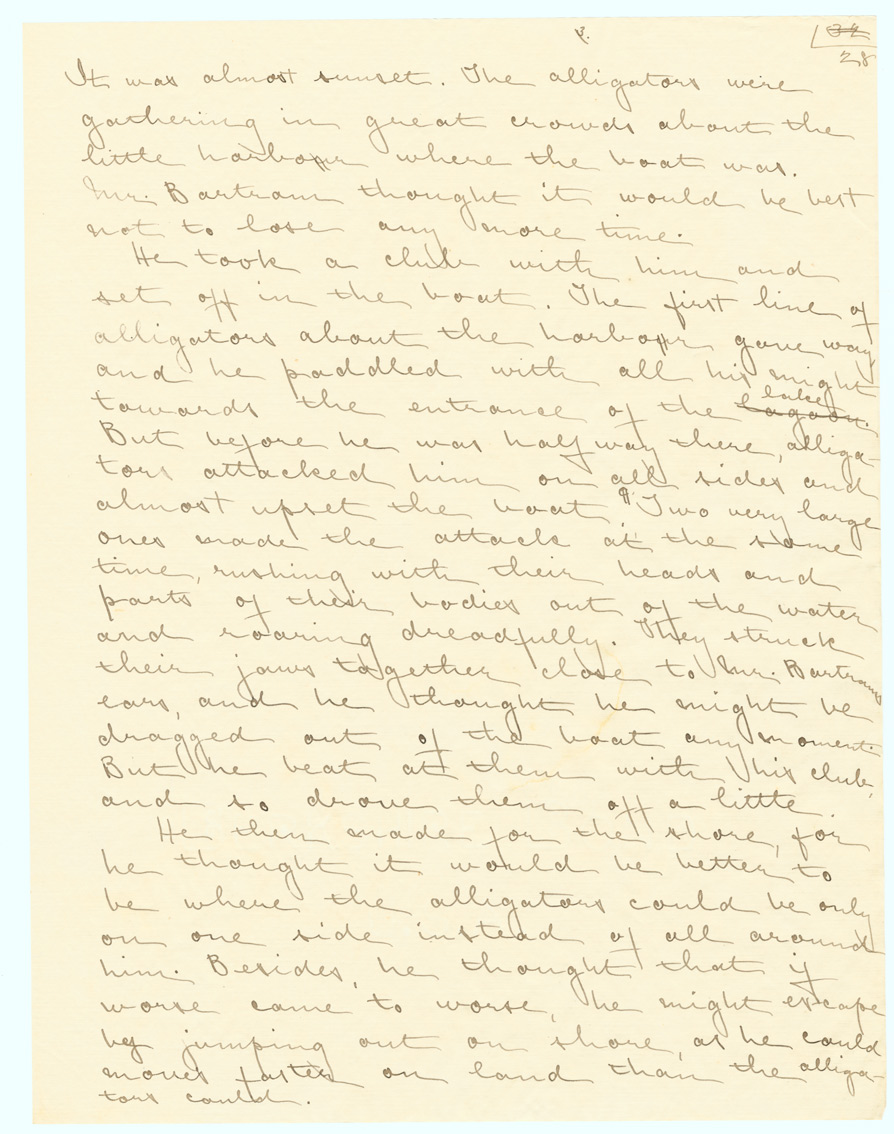 3.
34
28
It was almost sunset. The alligators were
gathering in great crowds about the
little harbour where the boat was.
Mr. Bartram thought it would be best
not to lose any more time.
He took a club with him and
set off in the boat. The first line of
alligators about the harbour gave way
and he paddled with all his might
lake
towards the entrance of the lagoon.
But before he was half way there, alliga-
tors attacked him on all sides and
almost upset the boat. ¶ Two very large
ones made the attack at the same
time, rushing with their heads and
parts of their bodies out of the water
and roaring dreadfully. They struck
their jaws together close to Mr. Bartrams
ears, and he thought he might be
dragged out of the boat any moment.
But he beat at them with his club,
and so drove them off a little.
He then made for the shore, for
he thought it would be better to
be where the alligators could be only
on one side instead of all around
him. Besides, he thought that if
worse came to worse, he might escape
by jumping out on shore, as he could
moves faster on land than the alliga-
tors could.